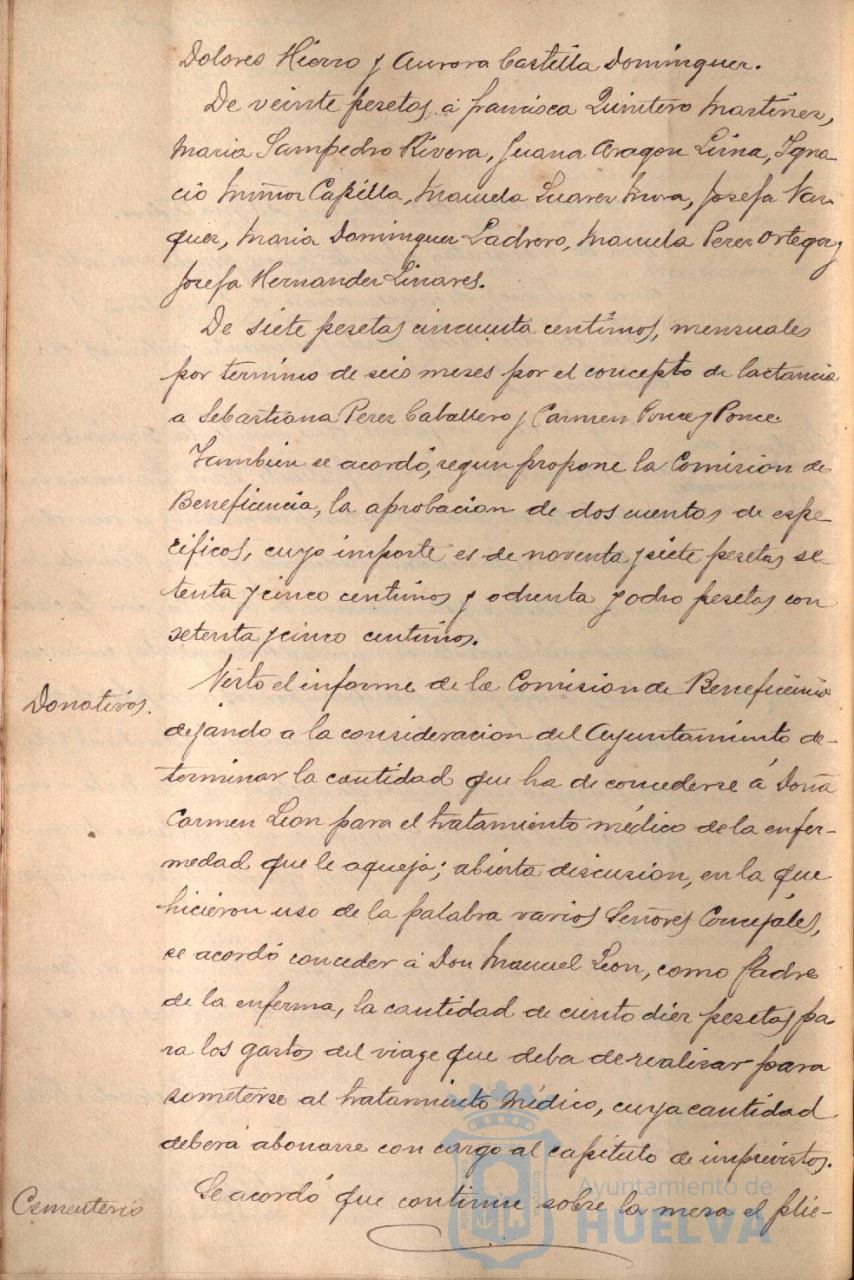 Dolores Hierro y Aurora Castilla Dominguez.
De veinte pesetas á Francisca Quintero Martinez,
Maria Sampedro Rivera, Juana Aragon Lima, Igna-
cio Muñoz Capilla, Manuela Suarez Mora, Josefa Vaz-
quez, Maria Dominguez Ladrero, Manuela Perez Ortega y
Josefa Hernandez Linares.
De siete pesetas cincuenta centimos, mensuales
por termino de seis meses por el concepto de lactancia
a Sebastiana Perez Caballero y Carmen Ponce y Ponce.
Tambien se acordó, segun propone la Comision de
Beneficencia, la aprobacion de dos cuentas de espe
cificos, cuyo importe es de noventa y siete pesetas se-
tenta y cinco centimos y ochenta y ocho pesetas con
setenta y cinco centimos.
Donativos.
Visto el informe de la Comision de Beneficencia
dejando a la consideracion del Ayuntamiento de-
terminar la cantidad que ha de concederse á Doña
Carmen Leon para el tratamiento médico de la enfer-
medad que le aqueja; abierta discusion, en la que
hicieron uso de la palabra varios Señores Concejales,
se acordó conceder á Don Manuel Leon, como Padre
de la enferma, la cantidad de ciento diez pesetas pa
ra los gastos del viage que deba de realizar para
someterse al tratamiento Médico, cuya cantidad
deberá abonarse con cargo al capitulo de imprevistos.
Cementerio
Se acordó que continue sobre la mesa el plie-
Ayuntamiento de
HUELVA